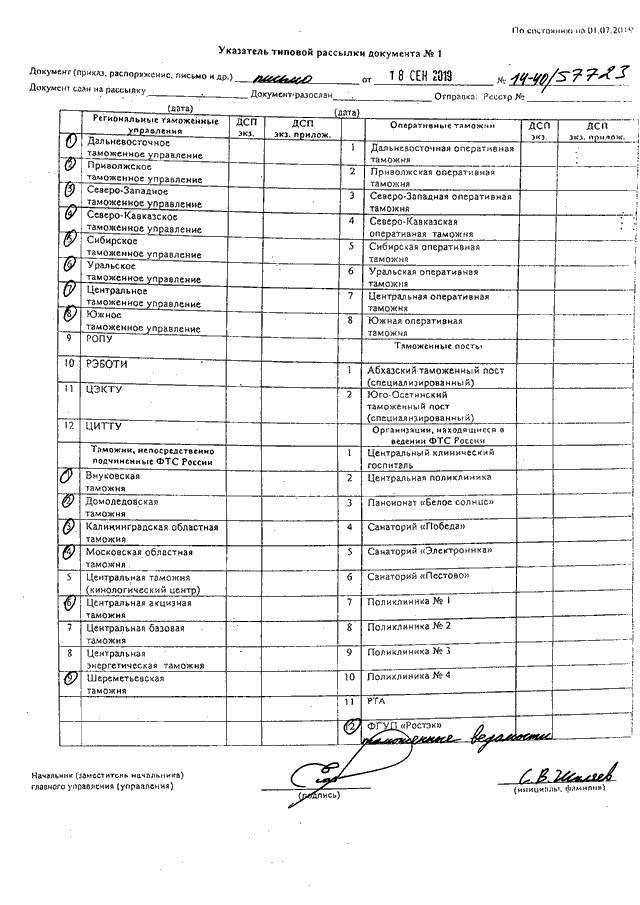 По состоянию на 01.07.2019
Указатель типовой рассылки документа № 1
Документ (приказ, распоряжение, письмо и др.) письмо от 18 СЕН 2019 № 14-40/57723
Документ сдан на рассылку Документ разослан Отправка: Реестр №
(дата) (дата)
Региональные таможенные управления ДСП экз. ДСП экз. прилож.
1 Дальневосточное
таможенное управление
2 Приволжское
таможенное управление
3 Северо-Западное
таможенное управление
4 Северо-Кавказское
таможенное управление
5 Сибирское
таможенное управление
6 Уральское
таможенное управление
7 Центральное
таможенное управление
8 Южное
таможенное управление
9 РОПУ
10 РЭБОТИ
11 ЦЭКТУ
12 ЦИТТУ
Таможни, непосредственно
подчиненные ФТС России
1 Внуковская
таможня
2 Домодедовская
таможня
3 Калининградская областная
таможня
4 Московская областная
таможня
5 Центральная таможня
(кинологический центр)
6 Центральная акцизная
таможня
7 Центральная базовая
таможня
8 Центральная
энергетическая таможня
9 Шереметьевская
таможня
Оперативные таможни ДСП экз. ДСП экз. прилож.
1 Дальневосточная оперативная
таможня
2 Приволжская оперативная
таможня
3 Северо-Западная оперативная
таможня
4 Северо-Кавказская
оперативная таможня
5 Сибирская оперативная
таможня
6 Уральская оперативная
таможня
7 Центральная оперативная
таможня
8 Южная оперативная
таможня
Таможенные посты
1 Абхазский таможенный пост
(специализированный)
2 Юго-Осетинский
таможенный пост
(специализированный)
Организации, находящиеся в
ведении ФТС России
1 Центральный клинический
госпиталь
2 Центральная поликлиника
3 Пансионат «Белое солнце»
4 Санаторий «Победа»
5 Санаторий «Электроника»
6 Санаторий «Пестово»
7 Поликлиника № 1
8 Поликлиника № 2
9 Поликлиника № 3
10 Поликлиника № 4
11 РТА
12 ФГУП «Ростэк»
таможенные ведомости
Начальник (заместитель начальника)
главного управления (управления)
(подпись)
С.В. Шкляев
(инициалы, фамилия)